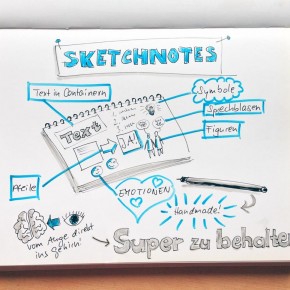 SKETCHNOTES
Text in Containern
Symbole
Sprechblasen
Figuren
Text
JA!
Pfeile
EMOTIONEN
Handmade!
vom Auge direkt
ins gehirn
Super zu behalten